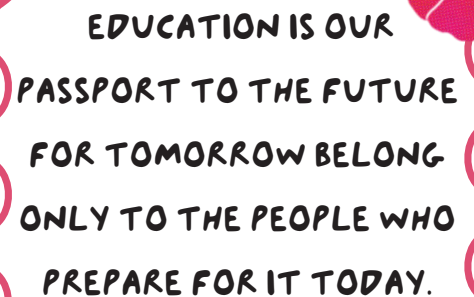 EDUCATION IS OUR
PASSPORT TO THE FUTURE
FOR TOMORROW BELONG
ONLY TO THE PEOPLE WHO
PREPARE FOR IT TODAY.